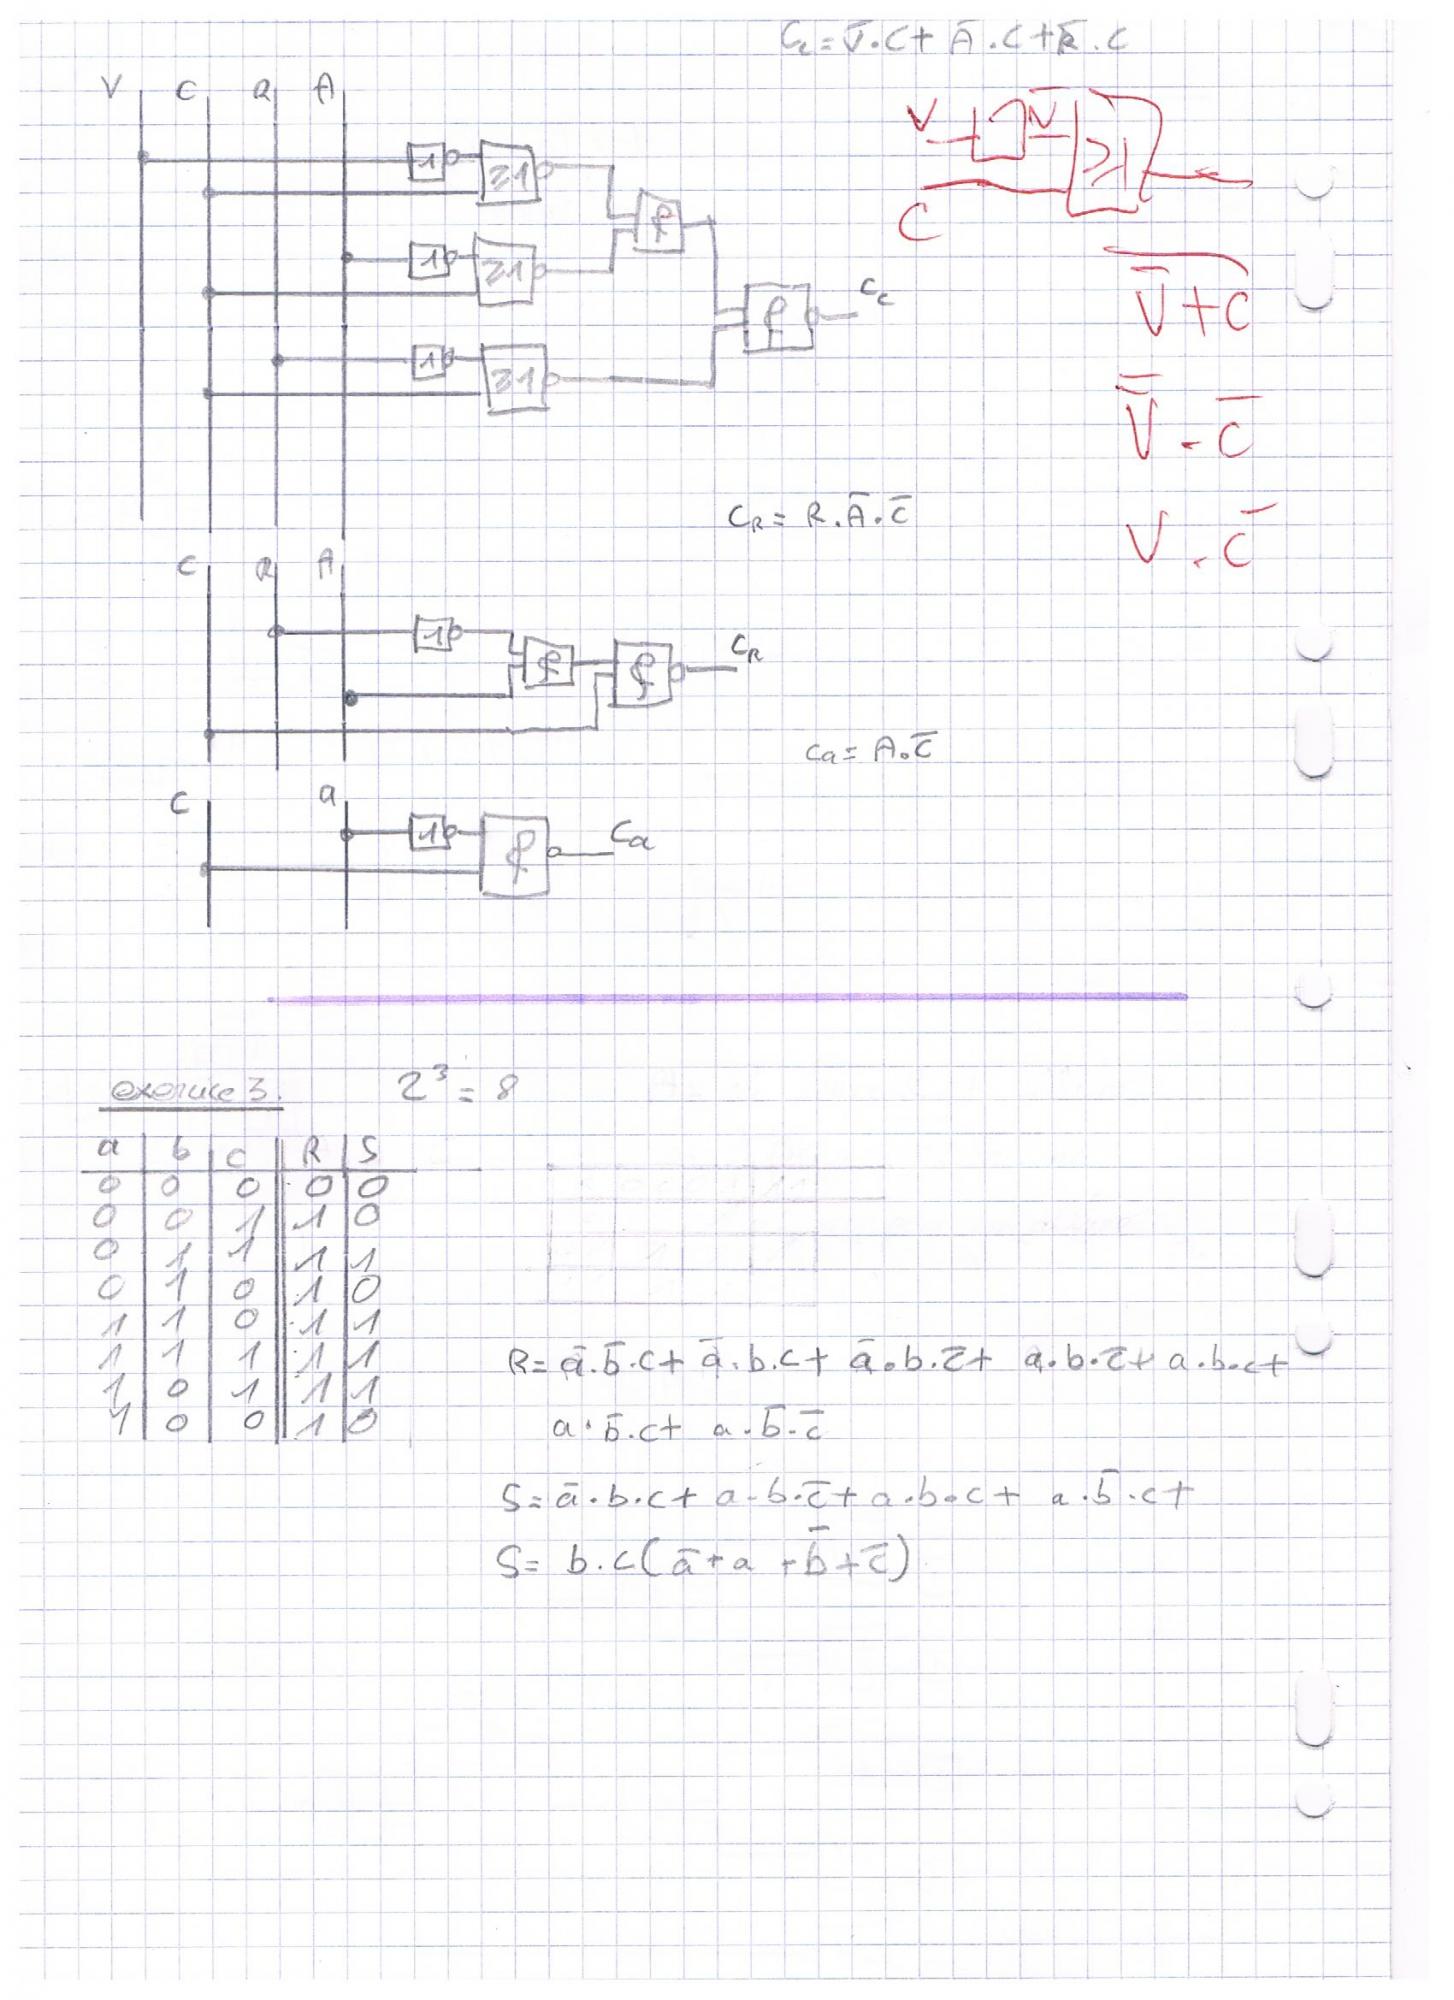 C_c = V̅.C + A̅.C + R̅.C
V C R A
V V̅
1 ≥1
≥1
C
1 ≥1 &
V̅+C (overlined)
& C_c
1 ≥1
V̿ . C̅
C_R = R.A̅.C̅
V . C̅
C R A
1 & & C_R
C_a = A.C̅
C a
1 & C_a
exercice 3. 2³ = 8
a b c R S
0 0 0 0 0
0 0 1 1 0
0 1 1 1 1
0 1 0 1 0
1 1 0 1 1
1 1 1 1 1
1 0 1 1 1
1 0 0 1 0
R = a̅.b̅.c + a̅.b.c + a̅.b.c̅ + a.b.c̅ + a.b.c +
a.b̅.c + a.b̅.c̅
S = a̅.b.c + a.b.c̅ + a.b.c + a.b̅.c +
S = b.c(a̅+a+b̅+c̅)